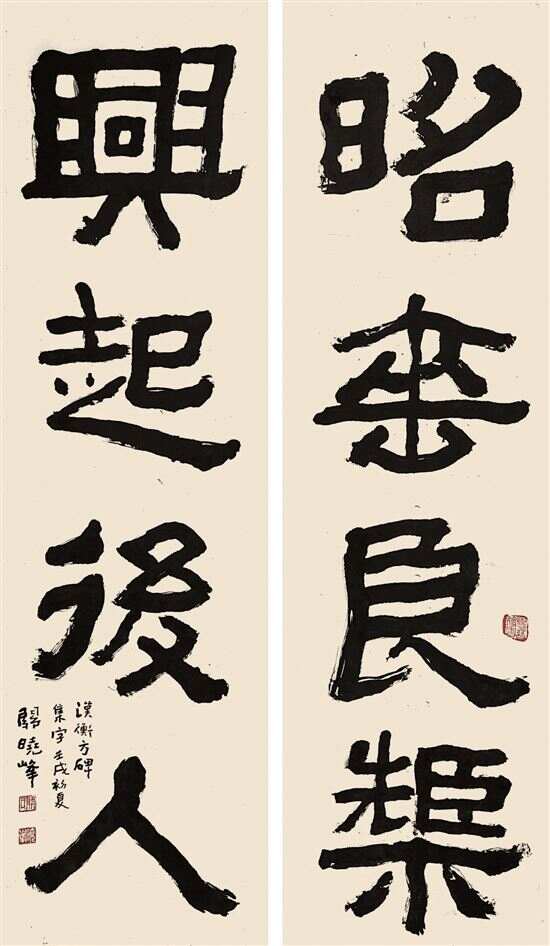 昭垂良榘
興起後人
漢衡方碑
集字壬戌初夏
曉峰